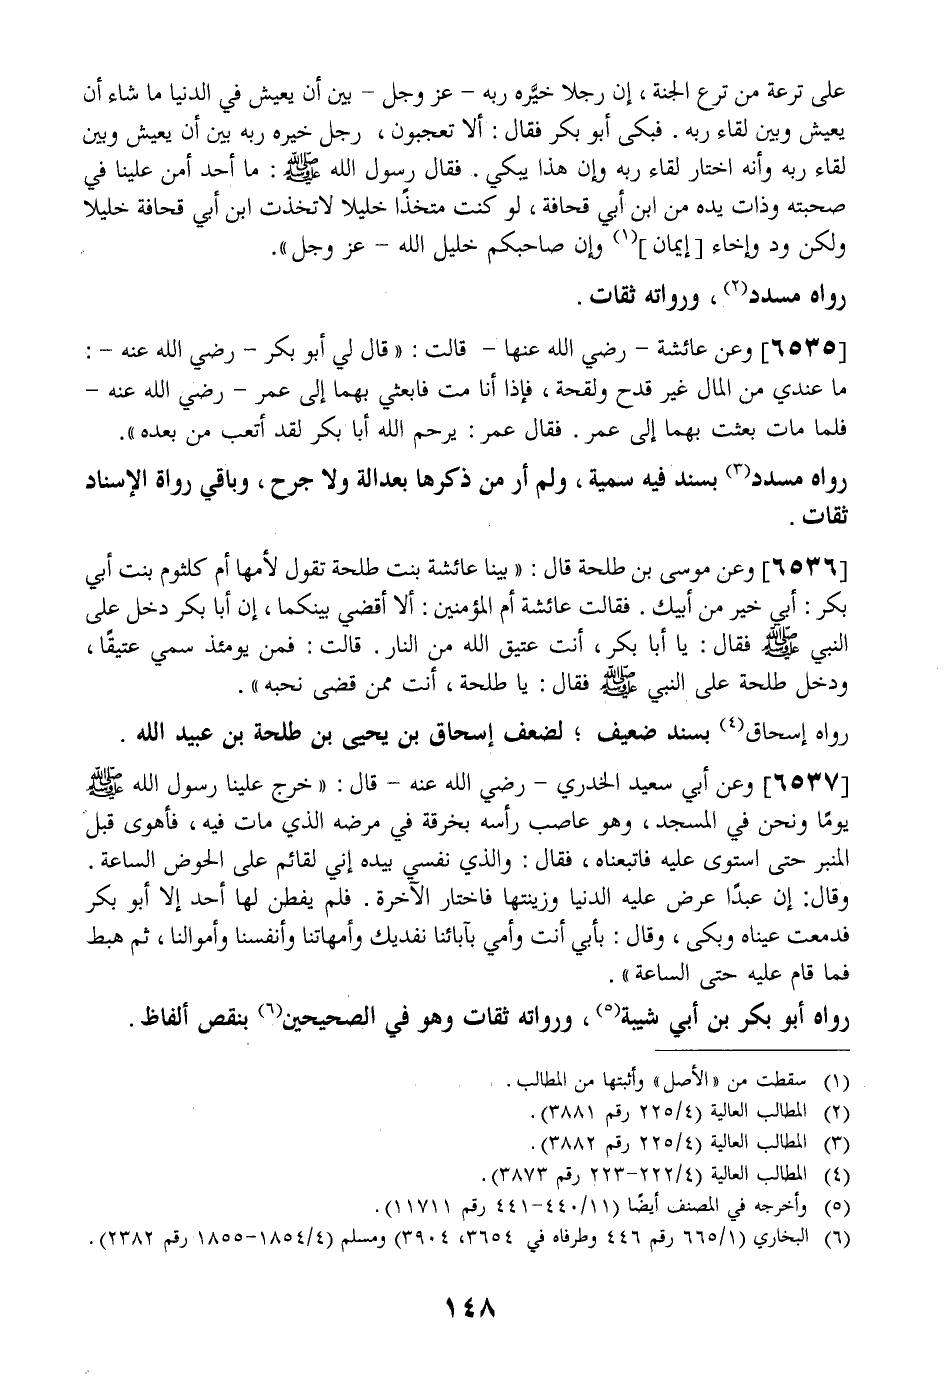 على ترعة من ترع الجنة ، إن رجلا خيَّره ربه – عز وجل – بين أن يعيش في الدنيا ما شاء أن
يعيش وبين لقاء ربه . فبكى أبو بكر فقال : ألا تعجبون ، رجل خيره ربه بين أن يعيش وبين
لقاء ربه وأنه اختار لقاء ربه وإن هذا يبكي . فقال رسول الله ﷺ : ما أحد أمن علينا في
صحبته وذات يده من ابن أبي قحافة ، لو كنت متخذًا خليلا لاتخذت ابن أبي قحافة خليلا
ولكن ود وإخاء [إيمان](١) وإن صاحبكم خليل الله – عز وجل».
رواه مسدد(٢) ، ورواته ثقات .
[٦٥٣٥] وعن عائشة – رضي الله عنها – قالت : «قال لي أبو بكر – رضي الله عنه – :
ما عندي من المال غير قدح ولقحة ، فإذا أنا مت فابعثي بهما إلى عمر – رضي الله عنه –
فلما مات بعثت بهما إلى عمر . فقال عمر : يرحم الله أبا بكر لقد أتعب من بعده».
رواه مسدد(٣) بسند فيه سمية ، ولم أر من ذكرها بعدالة ولا جرح ، وباقي رواة الإسناد
ثقات .
[٦٥٣٦] وعن موسى بن طلحة قال : «بينا عائشة بنت طلحة تقول لأمها أم كلثوم بنت أبي
بكر : أبي خير من أبيك . فقالت عائشة أم المؤمنين : ألا أقضي بينكما ، إن أبا بكر دخل على
النبي ﷺ فقال : يا أبا بكر ، أنت عتيق الله من النار . قالت : فمن يومئذ سمي عتيقًا ،
ودخل طلحة على النبي ﷺ فقال : يا طلحة ، أنت ممن قضى نحبه» .
رواه إسحاق(٤) بسند ضعيف ؛ لضعف إسحاق بن يحيى بن طلحة بن عبيد الله .
[٦٥٣٧] وعن أبي سعيد الخدري – رضي الله عنه – قال : «خرج علينا رسول الله ﷺ
يومًا ونحن في المسجد ، وهو عاصب رأسه بخرقة في مرضه الذي مات فيه ، فأهوى قبل
المنبر حتى استوى عليه فاتبعناه ، فقال : والذي نفسي بيده إني لقائم على الحوض الساعة .
وقال: إن عبدًا عرض عليه الدنيا وزينتها فاختار الآخرة . فلم يفطن لها أحد إلا أبو بكر
فدمعت عيناه وبكى ، وقال : بأبي أنت وأمي بآبائنا نفديك وأمهاتنا وأنفسنا وأموالنا ، ثم هبط
فما قام عليه حتى الساعة» .
رواه أبو بكر بن أبي شيبة(٥) ، ورواته ثقات وهو في الصحيحين(٦) بنقص ألفاظ .
(١) سقطت من «الأصل» وأثبتها من المطالب .
(٢) المطالب العالية (٢٢٥/٤ رقم ٣٨٨١).
(٣) المطالب العالية (٢٢٥/٤ رقم ٣٨٨٢).
(٤) المطالب العالية (٢٢٢/٤–٢٢٣ رقم ٣٨٧٣).
(٥) وأخرجه في المصنف أيضًا (٤٤٠/١١–٤٤١ رقم ١١٧١١).
(٦) البخاري (٦٦٥/١ رقم ٤٤٦ وطرفاه في ٣٦٥٤، ٣٩٠٤) ومسلم (١٨٥٤/٤–١٨٥٥ رقم ٢٣٨٢).
١٤٨